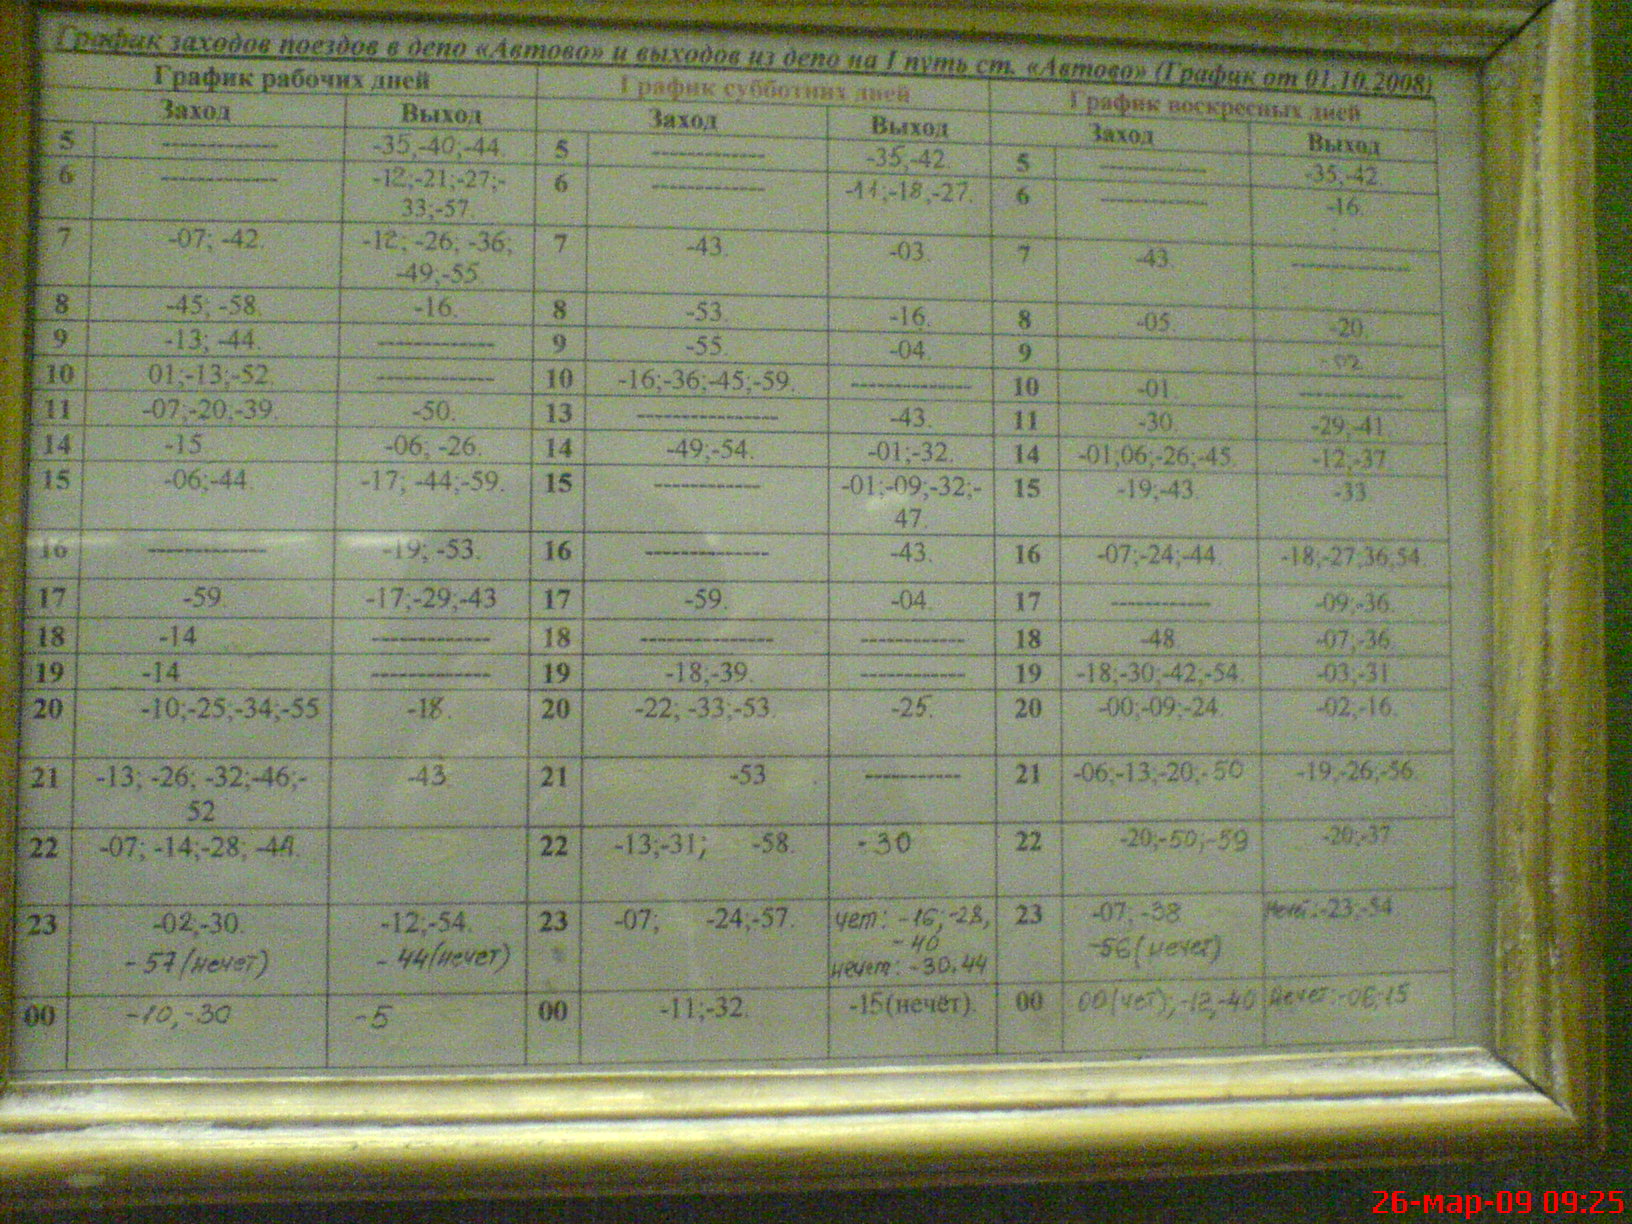 График заходов поездов в депо «Автово» и выходов из депо на I путь ст. «Автово» (График от 01.10.2008)
График рабочих дней График субботних дней График воскресных дней
Заход Выход Заход Выход Заход Выход
5 ------------- -35,-40,-44. 5 ------------- -35,-42. 5 ------------- -35,-42.
6 ------------- -12;-21;-27;- 6 ------------- -11;-18,-27. 6 ------------- -16.
33;-57.
7 -07; -42. -12; -26; -36; 7 -43. -03. 7 -43. -------------
-49;-55.
8 -45; -58. -16. 8 -53. -16. 8 -05. -20.
9 -13; -44. ------------- 9 -55. -04. 9 -02.
10 01;-13;-52. ------------- 10 -16;-36;-45;-59. ------------- 10 -01. -------------
11 -07;-20;-39. -50. 13 ------------- -43. 11 -30. -29;-41.
14 -15 -06; -26. 14 -49;-54. -01;-32. 14 -01,06;-26;-45. -12;-37.
15 -06;-44. -17; -44;-59. 15 ------------- -01;-09;-32;- 15 -19;-43. -33.
47.
16 ------------- -19; -53. 16 ------------- -43. 16 -07;-24;-44. -18;-27;36;54.
17 -59. -17;-29;-43 17 -59. -04. 17 ------------- -09;-36.
18 -14 ------------- 18 ------------- ------------- 18 -48. -07;-36.
19 -14 ------------- 19 -18;-39. ------------- 19 -18;-30;-42;-54. -03;-31
20 -10;-25;-34;-55 -18. 20 -22; -33;-53. -25. 20 -00;-09;-24. -02,-16.
21 -13; -26; -32;-46;- -43. 21 -53 ------------- 21 -06;-13;-20;-50 -19,-26;-56.
52
22 -07; -14;-28; 22 -13;-31; -58. -30 22 -20;-50;-59 -20;-37
23 -02;-30. -12;-54. 23 -07; -24;-57. чет: -16; -28, 23 -07; -38 нечет:-23;-54
-57(нечет) -44(нечет) -40 -56(нечет)
нечет: -30,44
00 -10,-30 -5 00 -11;-32. -15(нечёт). 00 00(чет);-12,-40 Нечет:-08;15
26-мар-09 09:25